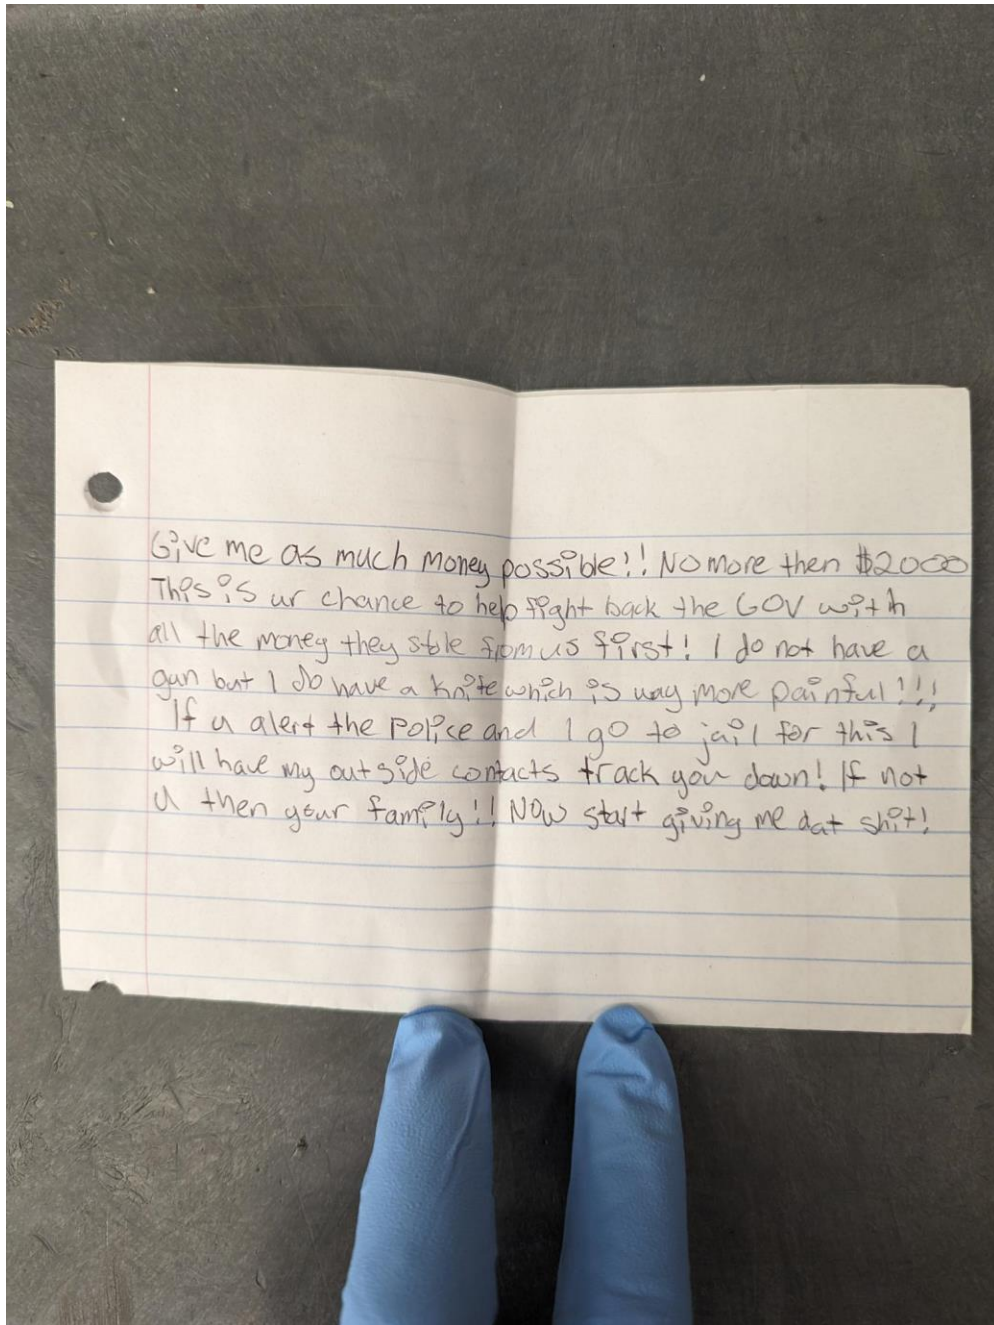 Give me as much money possible!! No more then $2000
This is ur chance to help fight back the GOV with
all the money they stole from us first! I do not have a
gun but I do have a knife which is way more painful!!!
If u alert the police and I go to jail for this I
will have my outside contacts track you down! If not
u then your family!! Now start giving me dat shit!